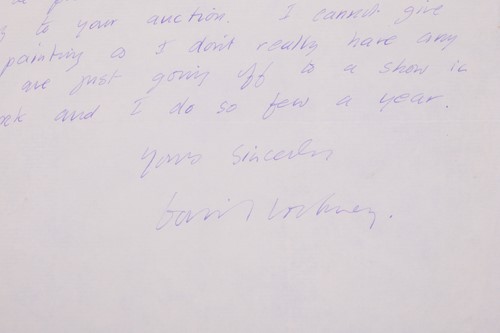 to your auction. I cannot give
painting as I don't really have any
are just going off to a show in
and I do so few a year.
Yours Sincerely
David Hockney.